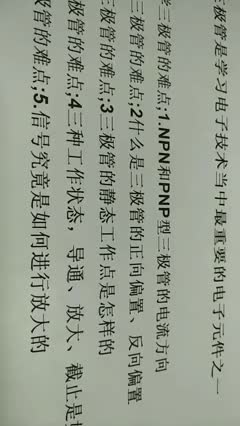 极管是学习电子技术当中最重要的电子元件之一
三极管的难点;1.NPN和PNP型三极管的电流方向
三极管的难点;2什么是三极管的正向偏置、反向偏置
极管的难点;3三极管的静态工作点是怎样的
极管的难点;4三种工作状态，导通、放大、截止是
极管的难点;5.信号究竟是如何进行放大的